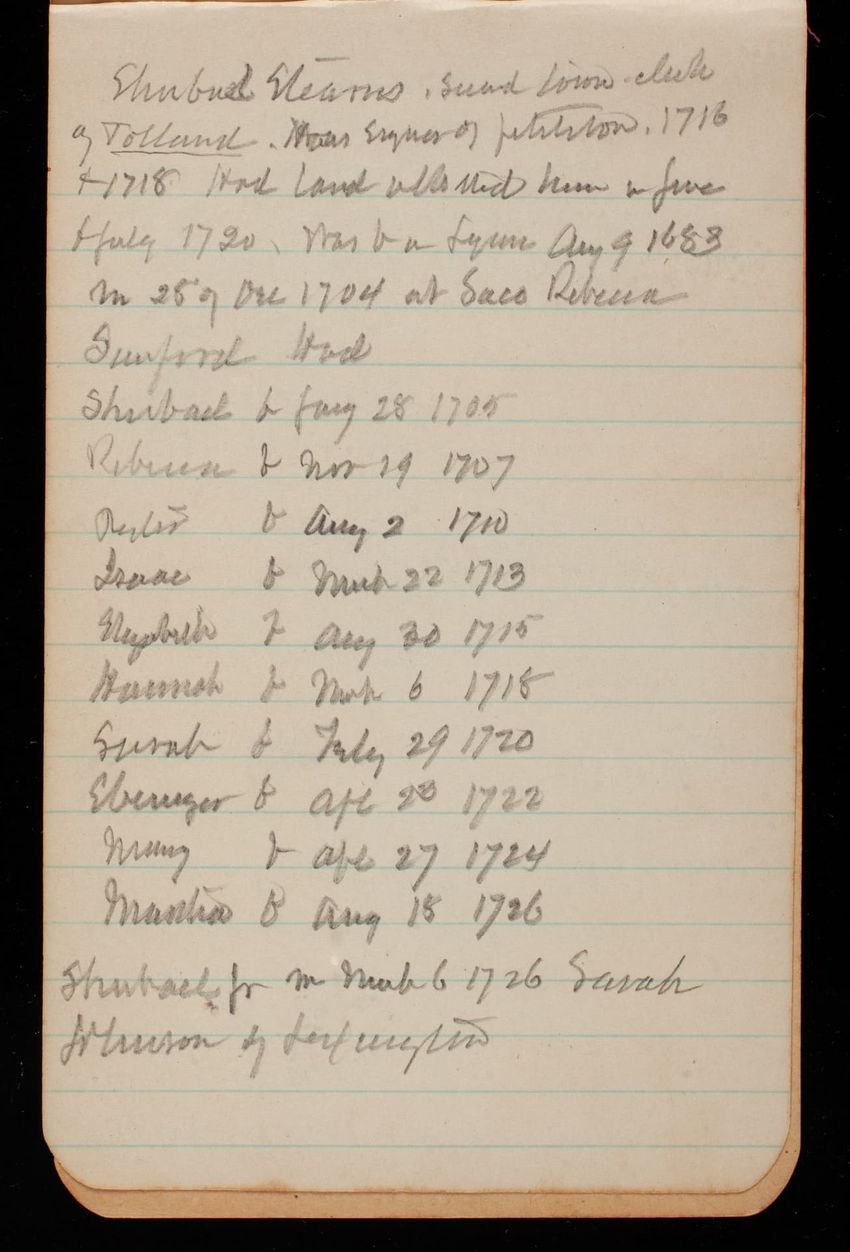 Shubael Stearns. second town clerk
of Tolland. Was Signer of petition. 1716
+ 1718 Had land allotted him in June
+ July 1720, Was b in Lynn Aug 9 1683
m 28 of Dec 1704 at Saco Rebecca
Sanford Had
Shubael b Jany 28 1705
Rebecca b Nov 19 1707
b Aug 2 1710
Isaac b Mch 22 1713
Elizabeth b Aug 30 1715
Hannah b Mch 6 1718
Sarah b Feby 29 1720
Ebenezer b Apl 23 1722
Mary b Apl 27 1724
Martha B Aug 18 1726
Shubael Jr m Mch 6 1726 Sarah
Johnson of Lexington